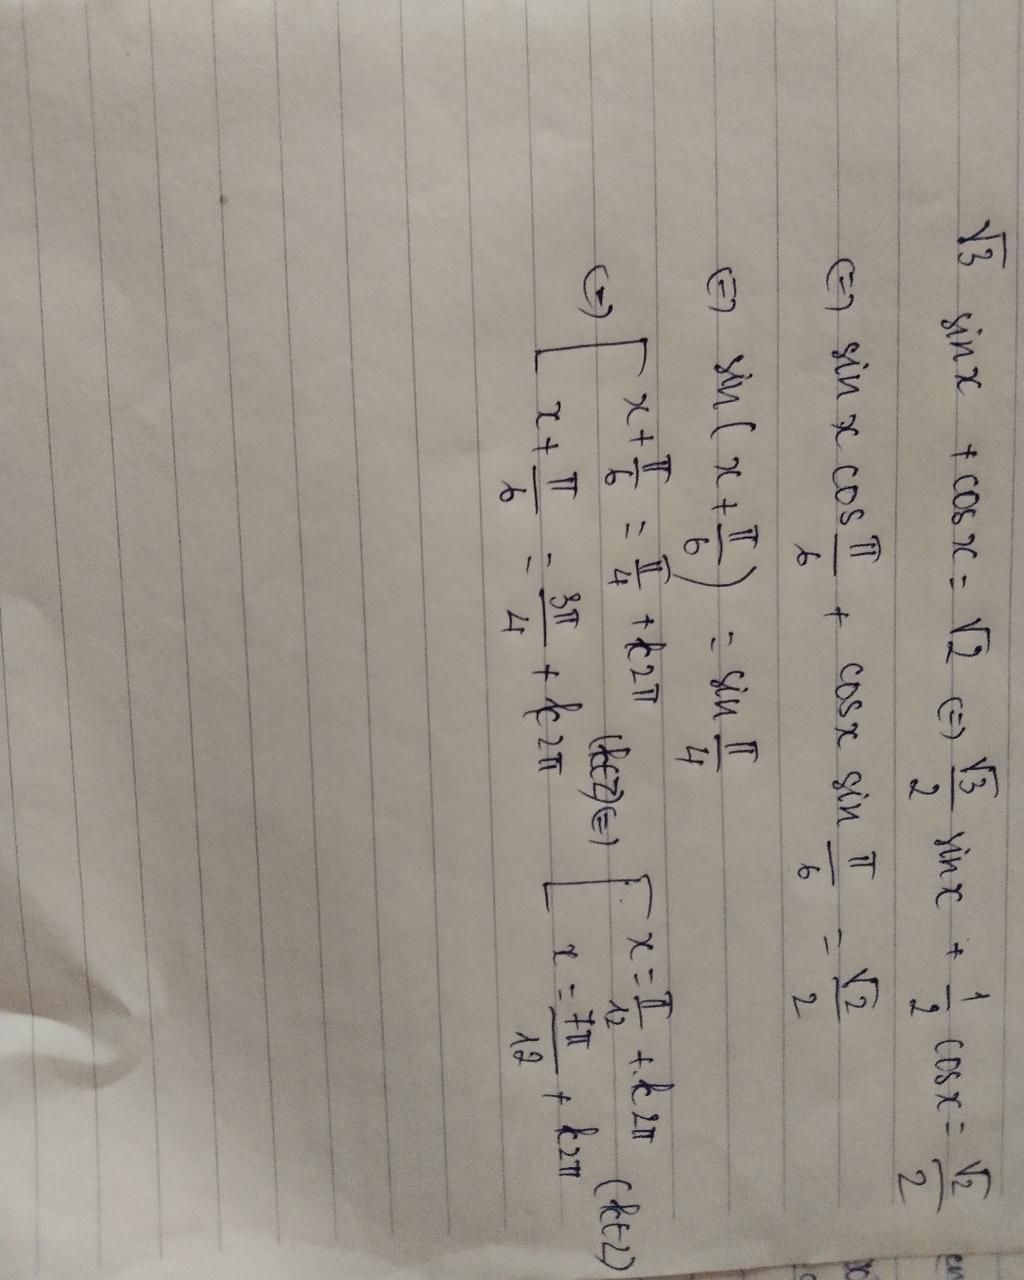 √3 sinx + cosx = √2 (=) √3/2 sinx + 1/2 cosx = √2/2
(=) sin x cos π/6 + cosx sin π/6 = √2/2
(=) sin( x + π/6 ) = sin π/4
(=) [ x + π/6 = π/4 + k2π (k∈Z) (=) [ x = π/12 + k2π (k∈Z)
x + π/6 = 3π/4 + k2π x = 7π/12 + k2π